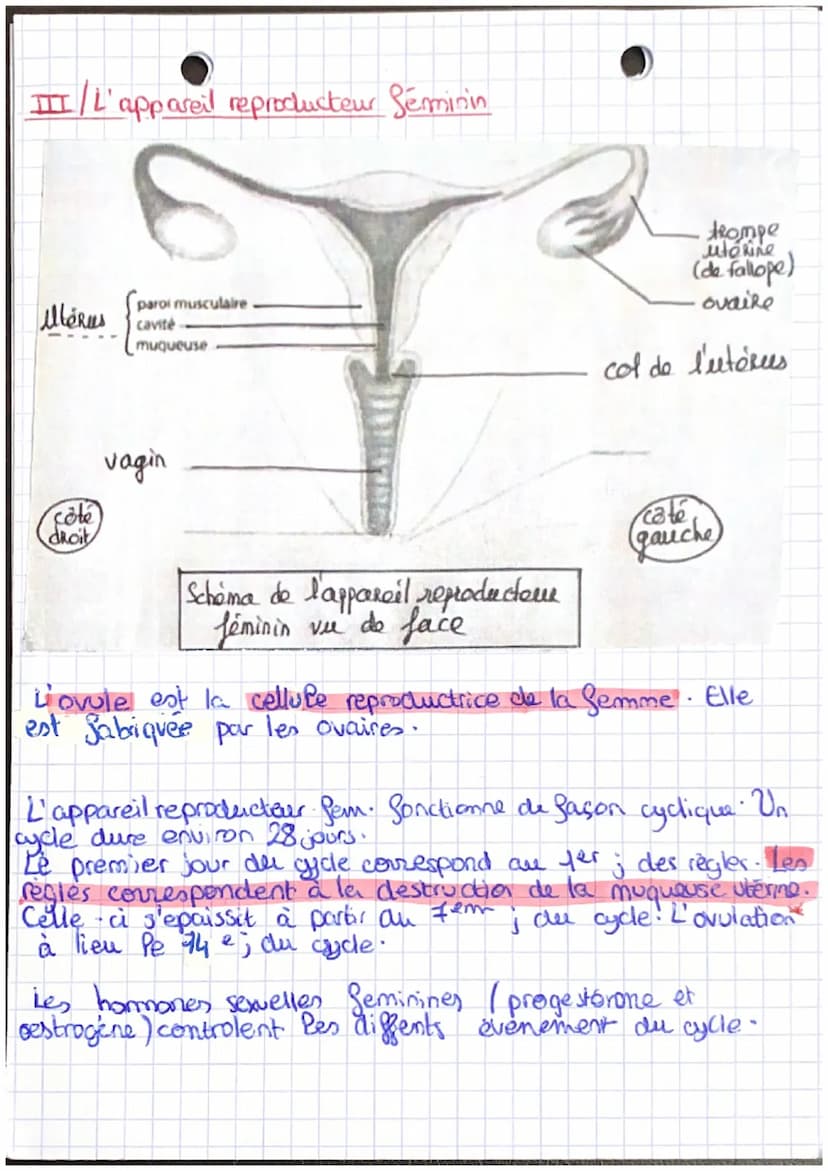 III/L'appareil reproducteur féminin
trompe
utérine
(de fallope)
ovaire
utérus
paroi musculaire
cavité
muqueuse
col de l'utérus
vagin
côté
droit
côté
gauche
Schéma de l'appareil reproducteur
féminin vu de face
L'ovule est la cellule reproductrice de la femme. Elle
est fabriquée par les ovaires.
L'appareil reproducteur fem. fonctionne de façon cyclique. Un
cycle dure environ 28 jours.
Le premier jour du cycle correspond au 1er j des règles. Les
règles correspondent à la destruction de la muqueuse utérine.
Celle-ci s'epaissit à partir du 7em j du cycle. L'ovulation*
à lieu le 14e j du cycle.
Les hormones sexuelles feminines (progestérone et
oestrogène) controlent les diffents évènement du cycle.